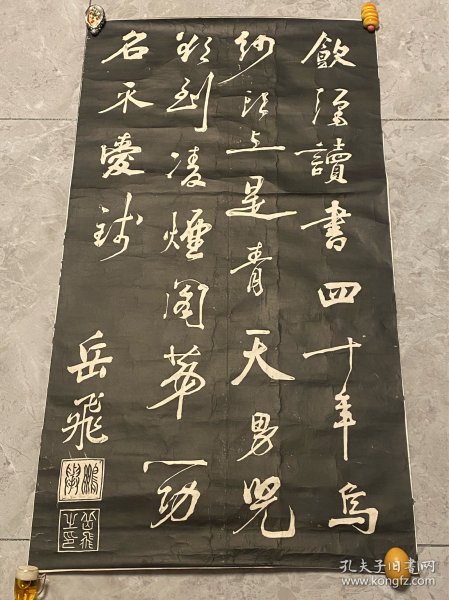 飲酒讀書四十年烏
紗頭上是青天男兒
欲到凌煙閣第一功
名不愛錢
岳飛
鵬舉
岳飛之印
孔夫子旧书网
www.kongfz.com